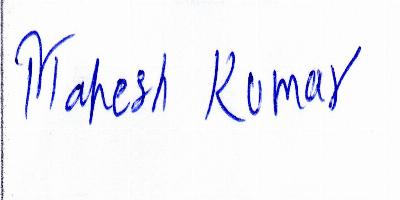 Mahesh Kumar